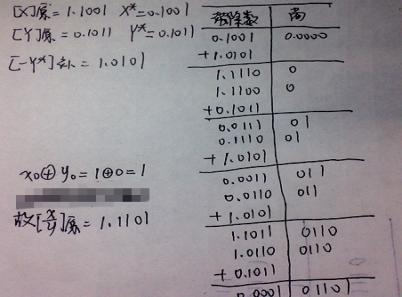 [X]原=1.1001 X*=0.1001
[Y]原=0.1011 Y*=0.1011
[-Y*]补=1.0101
x0⊕y0=1⊕0=1
故[x/y]原=1.1101
被除数 商
0.1001 0.0000
+1.0101
1.1110 0
1.1100 0
+0.1011
0.0111 01
0.1110 01
+1.0101
0.0011 011
0.0110 011
+1.0101
1.1011 0110
1.0110 0110
+0.1011
0.0001 01101